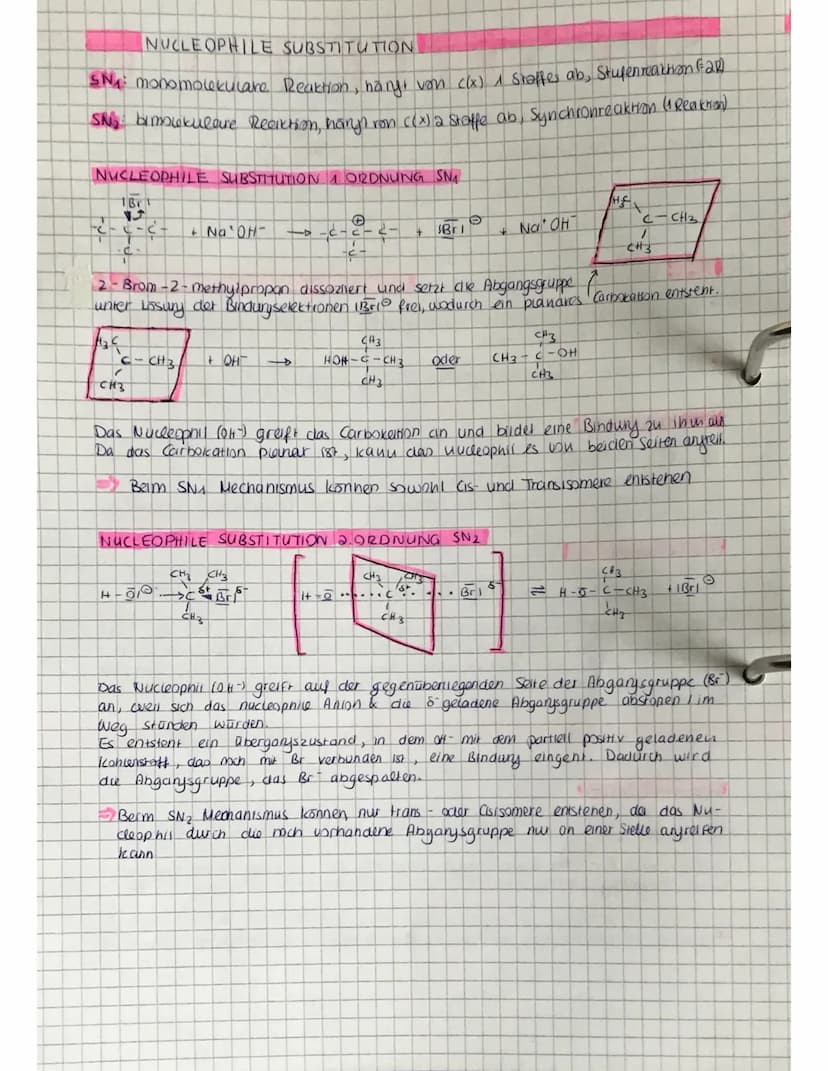 NUCLEOPHILE SUBSTITUTION
SN1: monomolekulare Reaktion, hängt von c(x) 1 Stoffes ab, Stufenreaktion (=2R)
SN2: bimolekulare Reaktion, hängt von c(x) 2 Stoffe ab, Synchronreaktion (1 Reaktion)
NUCLEOPHILE SUBSTITUTION 1 ORDNUNG SN1
|Br|
-C-C-C- + Na⁺OH⁻ → -C-C-C- + |Br|⊖ + Na⁺OH⁻
-C- ⊕ -C-
H3C
C-CH3
CH3
2-Brom-2-methylpropan dissoziiert und setzt die Abgangsgruppe
unter Lösung der Bindungselektronen |Br|⊖ frei, wodurch ein planares Carbokation entsteht.
H3C CH3 CH3
C-CH3 + OH⁻ → HOH-C-CH3 oder CH3-C-OH
CH3 CH3 CH3
Das Nucleophil (OH⁻) greift das Carbokation an und bildet eine Bindung zu ihm aus
Da das Carbokation planar ist, kann das nucleophil es von beiden Seiten angreif.
⇒ Beim SN1 Mechanismus können sowohl Cis- und Transisomere entstehen
NUCLEOPHILE SUBSTITUTION 2.ORDNUNG SN2
CH3 CH3 CH3 CH3 CH3
H-O|⊖ → C δ+ Br| δ- [H-O ..... C δ+ .... Br| δ-] ⇌ H-O-C-CH3 + |Br|⊖
CH3 CH3 CH3
Das Nucleophil (OH⁻) greift auf der gegenüberliegenden Seite der Abgangsgruppe (Br⁻)
an, weil sich das nucleophile Anion & die δ⁻geladene Abgangsgruppe abstoßen / im
Weg standen würden.
Es entsteht ein Übergangszustand, in dem OH⁻ mit dem partiell positiv geladenen
Kohlenstoff, das noch mit Br verbunden ist, eine Bindung eingeht. Dadurch wird
die Abgangsgruppe, das Br⁻ abgespalten.
⇒ Beim SN2 Mechanismus können nur trans- oder Cisisomere entstehen, da das Nu-
cleophil durch die noch vorhandene Abgangsgruppe nur an einer Stelle angreifen
kann